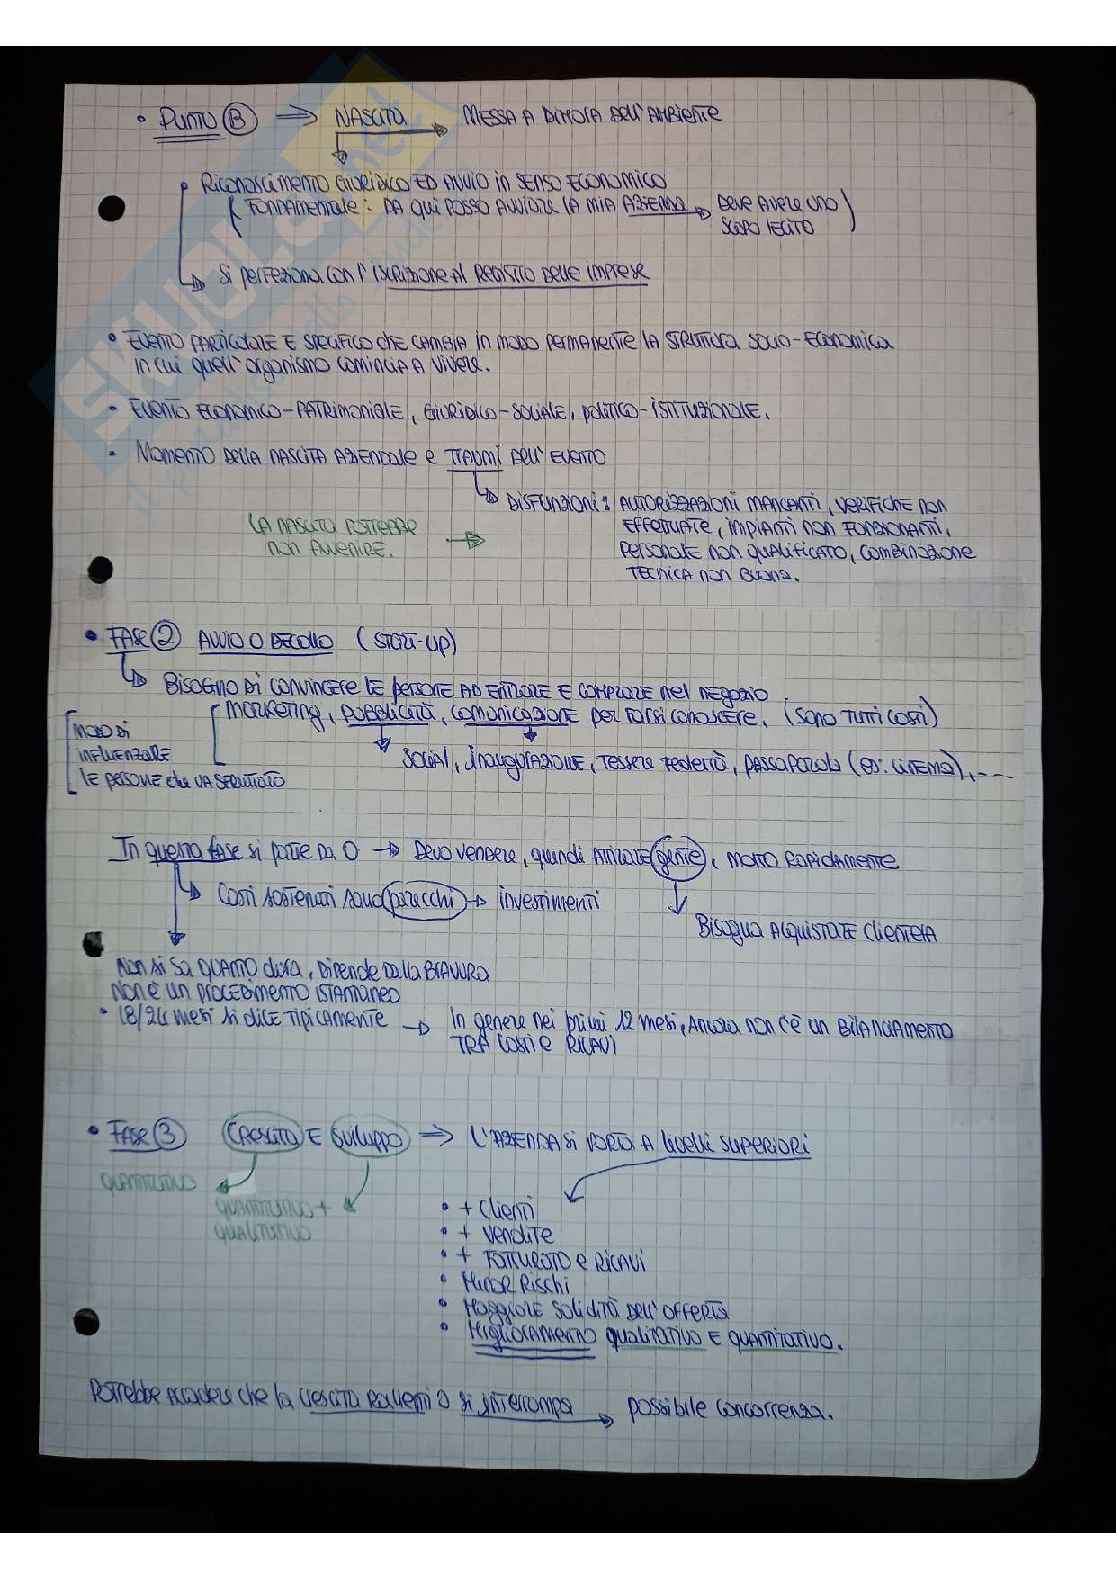 • PUNTO B ⇒ NASCITA → MESSA A DIMORA DELL'AMBIENTE
RICONOSCIMENTO GIURIDICO ED AVVIO IN SENSO ECONOMICO
(FONDAMENTALE: DA QUI POSSO AVVIARE LA MIA AZIENDA → DEVE AVERE UNO
SCOPO LECITO)
SI PERFEZIONA CON L'ISCRIZIONE AL REGISTRO DELLE IMPRESE
• EVENTO PARTICOLARE E SPECIFICO CHE CAMBIA IN MODO PERMANENTE LA STRUTTURA SOCIO-ECONOMICA
IN CUI QUELL'ORGANISMO COMINCIA A VIVERE.
• EVENTO ECONOMICO-PATRIMONIALE, GIURIDICO-SOCIALE, POLITICO-ISTITUZIONALE.
• MOMENTO DELLA NASCITA AZIENDALE E TRAUMI DELL'EVENTO
DISFUNZIONI: AUTORIZZAZIONI MANCANTI, VERIFICHE NON
LA NASCITA POTREBBE → EFFETTUATE, IMPIANTI NON FUNZIONANTI,
NON AVVENIRE. PERSONALE NON QUALIFICATO, COMBINAZIONE
TECNICA NON BUONA.
• FASE 2 AVVIO O DECOLLO (START-UP)
BISOGNO DI CONVINCERE LE PERSONE AD ENTRARE E COMPRARE NEL NEGOZIO
MARKETING, PUBBLICITÀ, COMUNICAZIONE PER FARSI CONOSCERE. (SONO TUTTI COSTI)
MODO DI
INFLUENZARE
LE PERSONE CHE VA SFRUTTATO
SOCIAL, INAUGURAZIONE, TESSERE FEDELTÀ, PASSAPAROLA (ES. CINEMA), ...
IN QUESTA FASE SI PARTE DA 0 → DEVO VENDERE, QUINDI ATTIRARE GENTE, MOLTO RAPIDAMENTE
COSTI SOSTENUTI SONO PARECCHI → INVESTIMENTI
BISOGNA ACQUISTARE CLIENTELA
NON SI SA QUANTO DURA, DIPENDE DALLA BRAVURA
NON È UN PROCEDIMENTO ISTANTANEO
• 18/24 MESI SI DICE TIPICAMENTE → IN GENERE NEI PRIMI 12 MESI, ANCORA NON C'È UN BILANCIAMENTO
TRA COSTI E RICAVI
• FASE 3 CRESCITA E SVILUPPO ⇒ L'AZIENDA SI PORTA A LIVELLI SUPERIORI
QUANTITATIVO
QUANTITATIVO +
QUALITATIVO
• + CLIENTI
• + VENDITE
• + FATTURATO E RICAVI
• MINOR RISCHI
• MAGGIORE SOLIDITÀ DELL'OFFERTA
• MIGLIORAMENTO QUALITATIVO E QUANTITATIVO.
POTREBBE ACCADERE CHE LA CRESCITA RALLENTI O SI INTERROMPA → POSSIBILE CONCORRENZA.